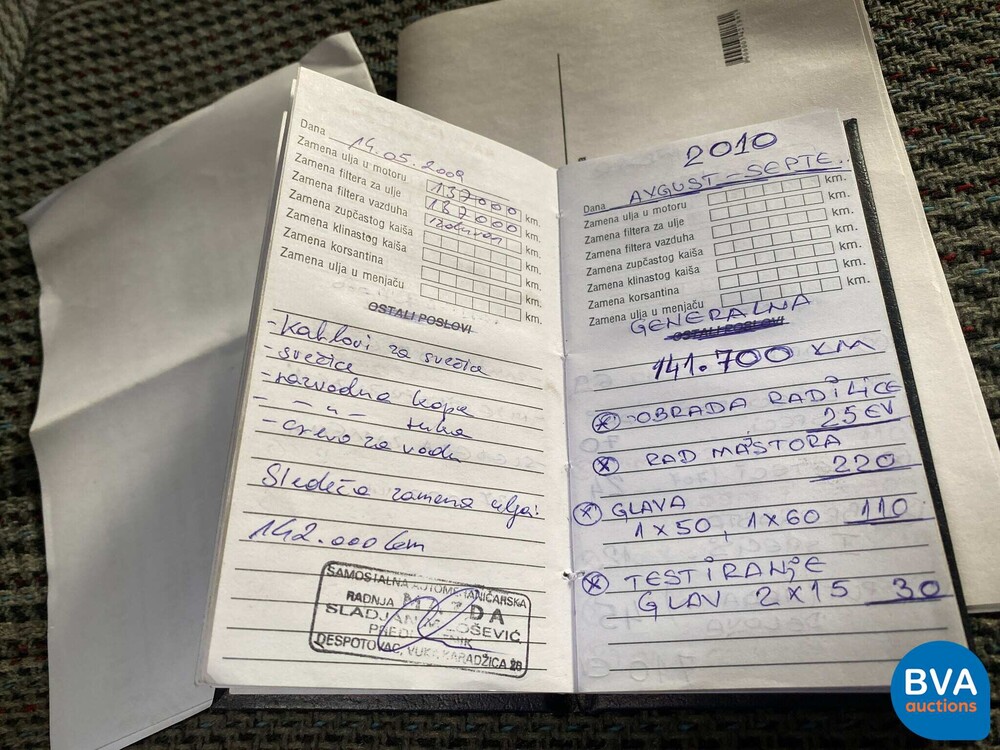 Dana 14.05.2009
Zamena ulja u motoru 137000 km.
Zamena filtera za ulje 137000 km.
Zamena filtera vazduha km.
Zamena zupčastog kaiša km.
Zamena klinastog kaiša km.
Zamena korsantina km.
Zamena ulja u menjaču km.
OSTALI POSLOVI
- Kablovi za svećice
- svećice
- razvodna kapa
- - u - ruka
- crevo za vodu
Sledeća zamena ulja:
142.000 km
SAMOSTALNA AUTOMEHANIČARSKA
RADNJA
SLADJAN
DESPOTOVAC, VUKA KARADŽICA 28
2010
Dana AVGUST - SEPTE..
Zamena ulja u motoru km.
Zamena filtera za ulje km.
Zamena filtera vazduha km.
Zamena zupčastog kaiša km.
Zamena klinastog kaiša km.
Zamena korsantina km.
Zamena ulja u menjaču km.
GENERALNA
OSTALI POSLOVI
141.700 KM
OBRADA RADILICE
25 EV
RAD MAŠTORA
220
GLAVA
1 x 50, 1 x 60 110
TESTIRANJE
GLAV 2 x 15 30
BVA
auctions